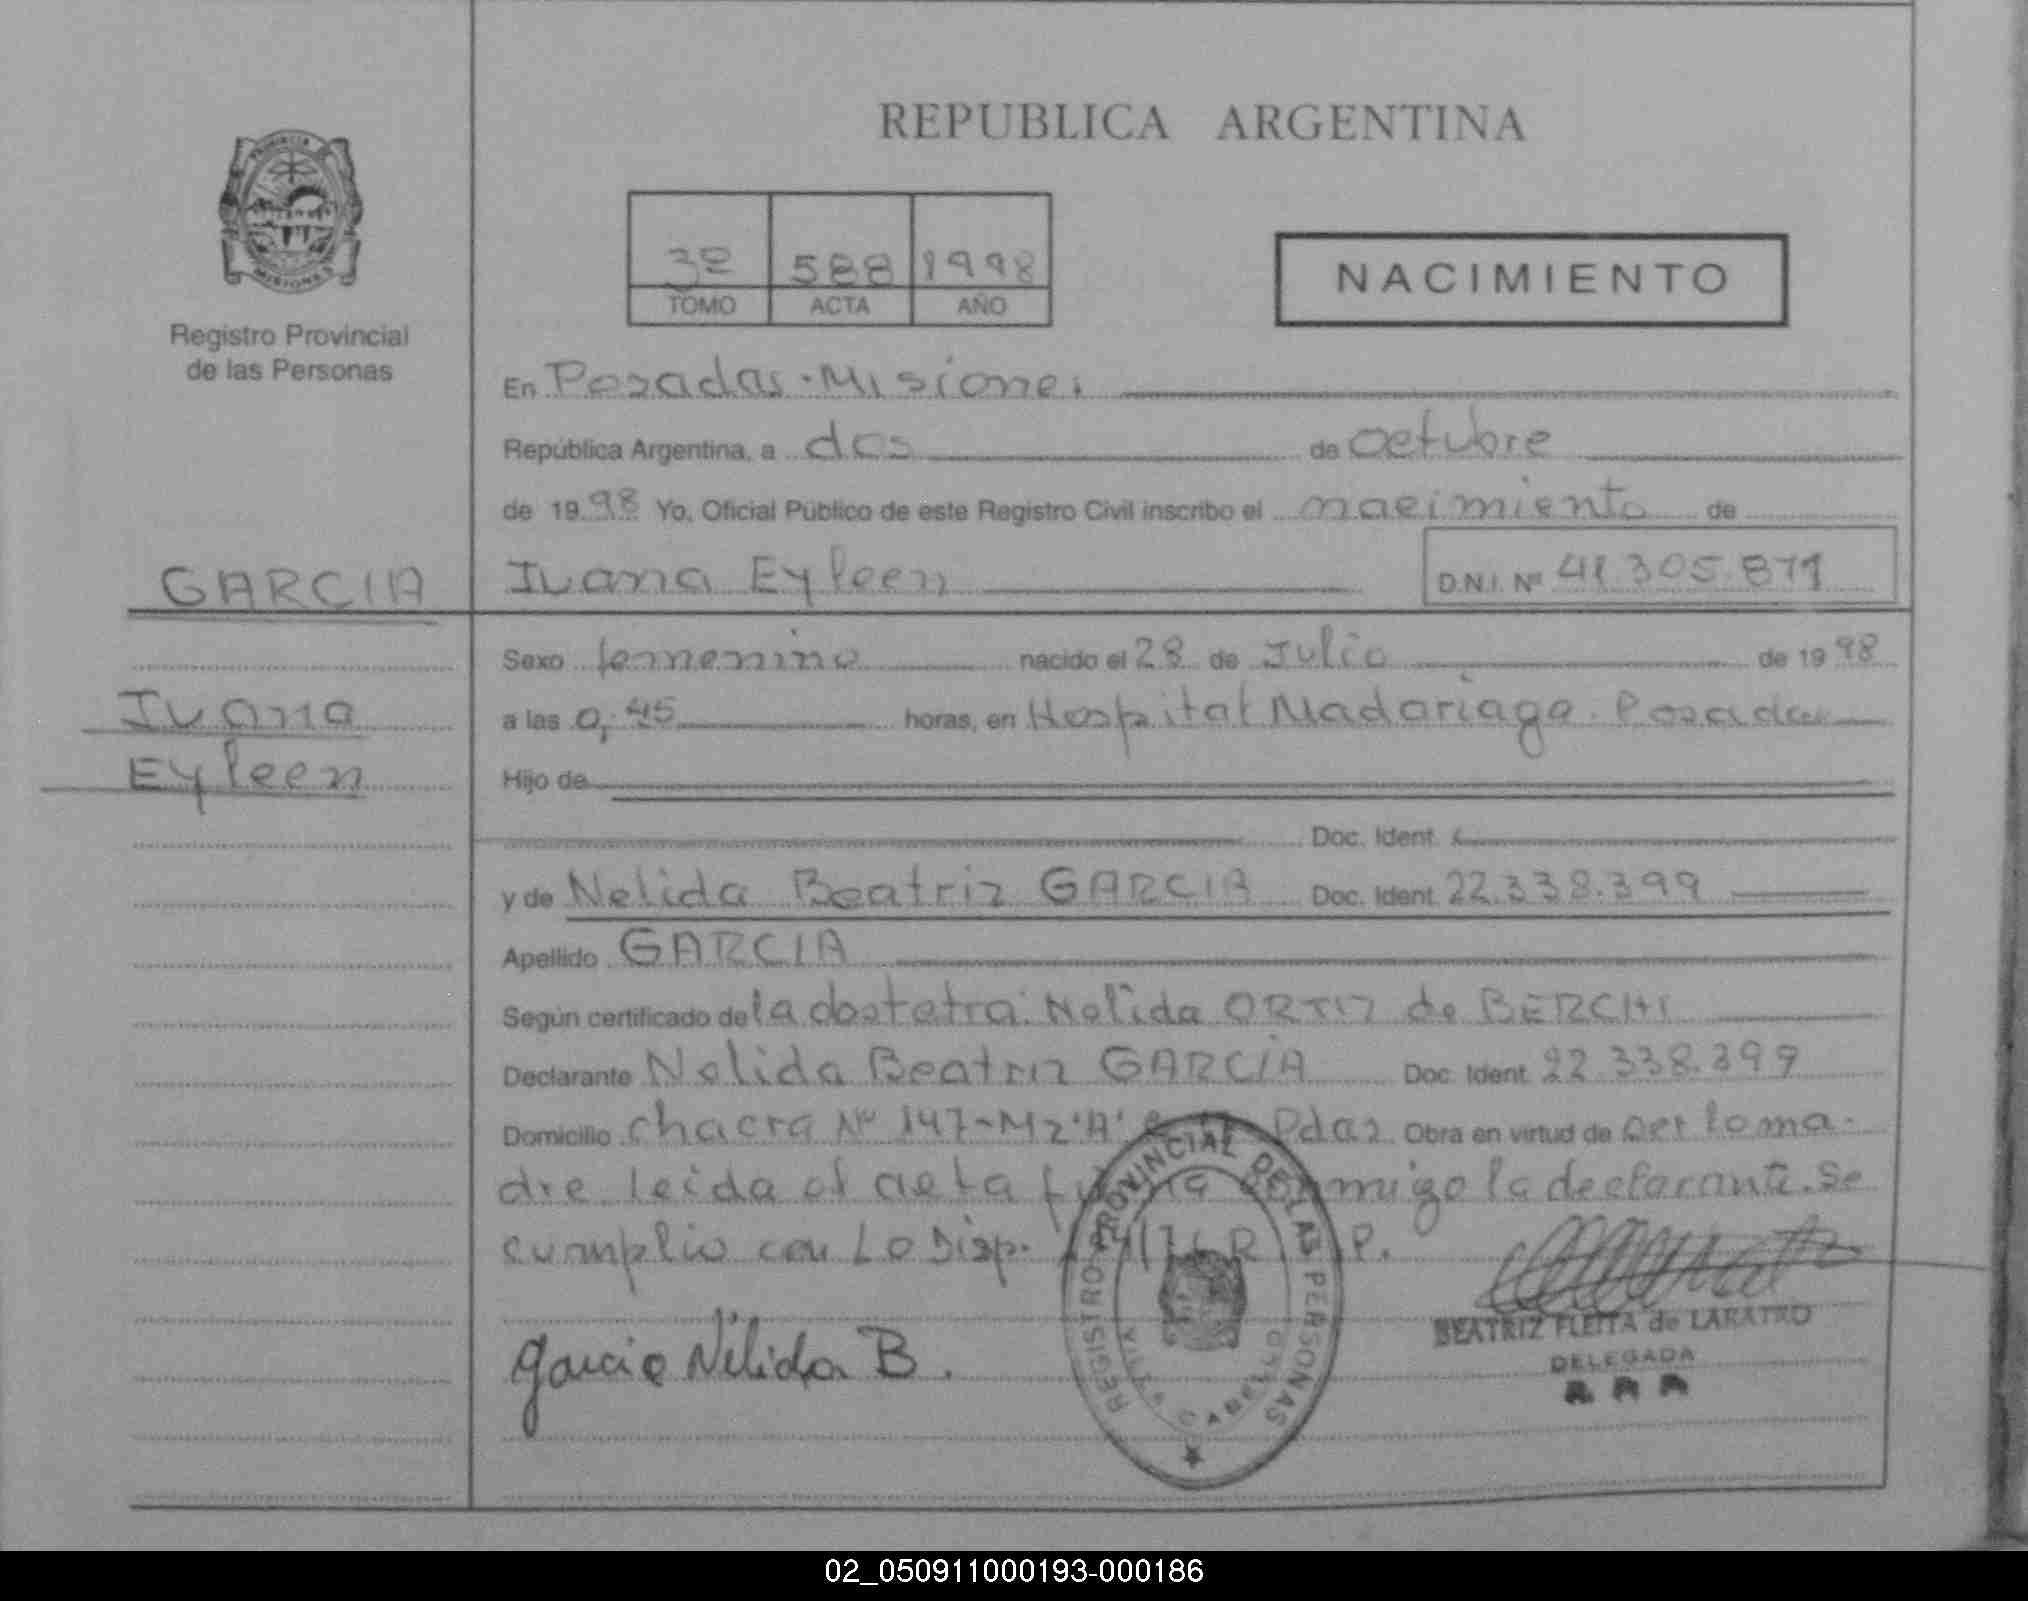 REPUBLICA ARGENTINA
PROVINCIA
MISIONES
Registro Provincial
de las Personas
3º 588 1998
TOMO ACTA AÑO
NACIMIENTO
En Posadas - Misiones
República Argentina, a dos de octubre
de 1998 Yo, Oficial Público de este Registro Civil inscribo el nacimiento de
GARCIA
Ivana Eyleen D.N.I. Nº 41 305.871
Sexo femenino nacido el 28 de Julio de 1998
Ivana
Eyleen
a las 0,45 horas, en Hospital Madariaga. Posadas
Hijo de
Doc. Ident.
y de Nelida Beatriz GARCIA Doc. Ident. 22.338.399
Apellido GARCIA
Según certificado de la obstetra: Nelida ORTIZ de BERCHI
Declarante Nelida Beatriz GARCIA Doc. Ident. 22.338.399
Domicilio chacra Nº 147-Mz "A" Pdas Obra en virtud de ser la ma-
dre leida el acta firma conmigo la declarante. Se
cumplio con Lo Disp. R P.
Garcia Nélida B.
REGISTRO PROVINCIAL DE LAS PERSONAS
VILLA CABELLO
BEATRIZ FLEITA de LARATRO
DELEGADA
02_050911000193-000186